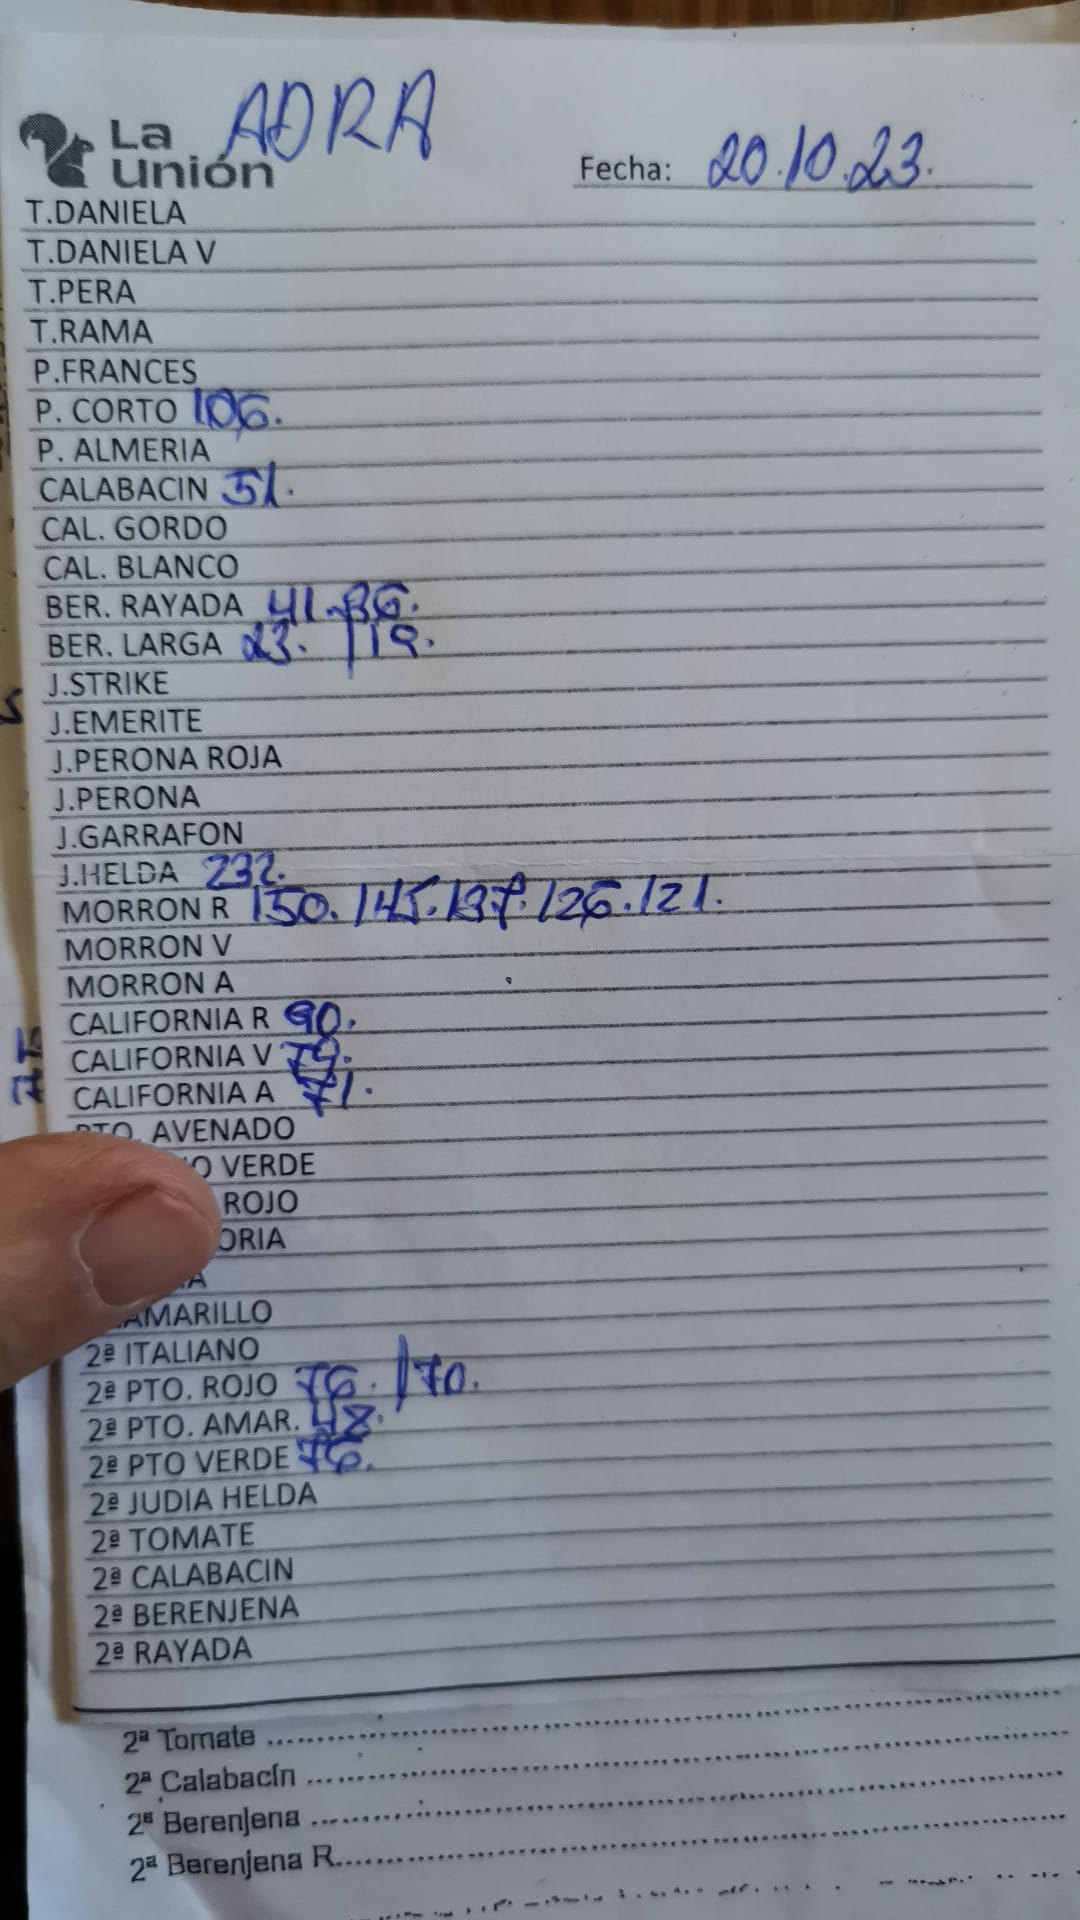 La Unión ADRA
Fecha: 20.10.23.
T.DANIELA
T.DANIELA V
T.PERA
T.RAMA
P.FRANCES
P. CORTO 106.
P. ALMERIA
CALABACIN 51.
CAL. GORDO
CAL. BLANCO
BER. RAYADA 41.36.
BER. LARGA 23. / 19.
J.STRIKE
J.EMERITE
J.PERONA ROJA
J.PERONA
J.GARRAFON
J.HELDA 232.
MORRON R 150.145.137.126.121.
MORRON V
MORRON A
CALIFORNIA R 90.
CALIFORNIA V 79.
CALIFORNIA A 71.
PTO. AVENADO
VERDE
ROJO
AMARILLO
2ª ITALIANO
2ª PTO. ROJO 76. / 70.
2ª PTO. AMAR. 48.
2ª PTO VERDE 76.
2ª JUDIA HELDA
2ª TOMATE
2ª CALABACIN
2ª BERENJENA
2ª RAYADA
2ª Tomate
2ª Calabacín
2ª Berenjena
2ª Berenjena R.